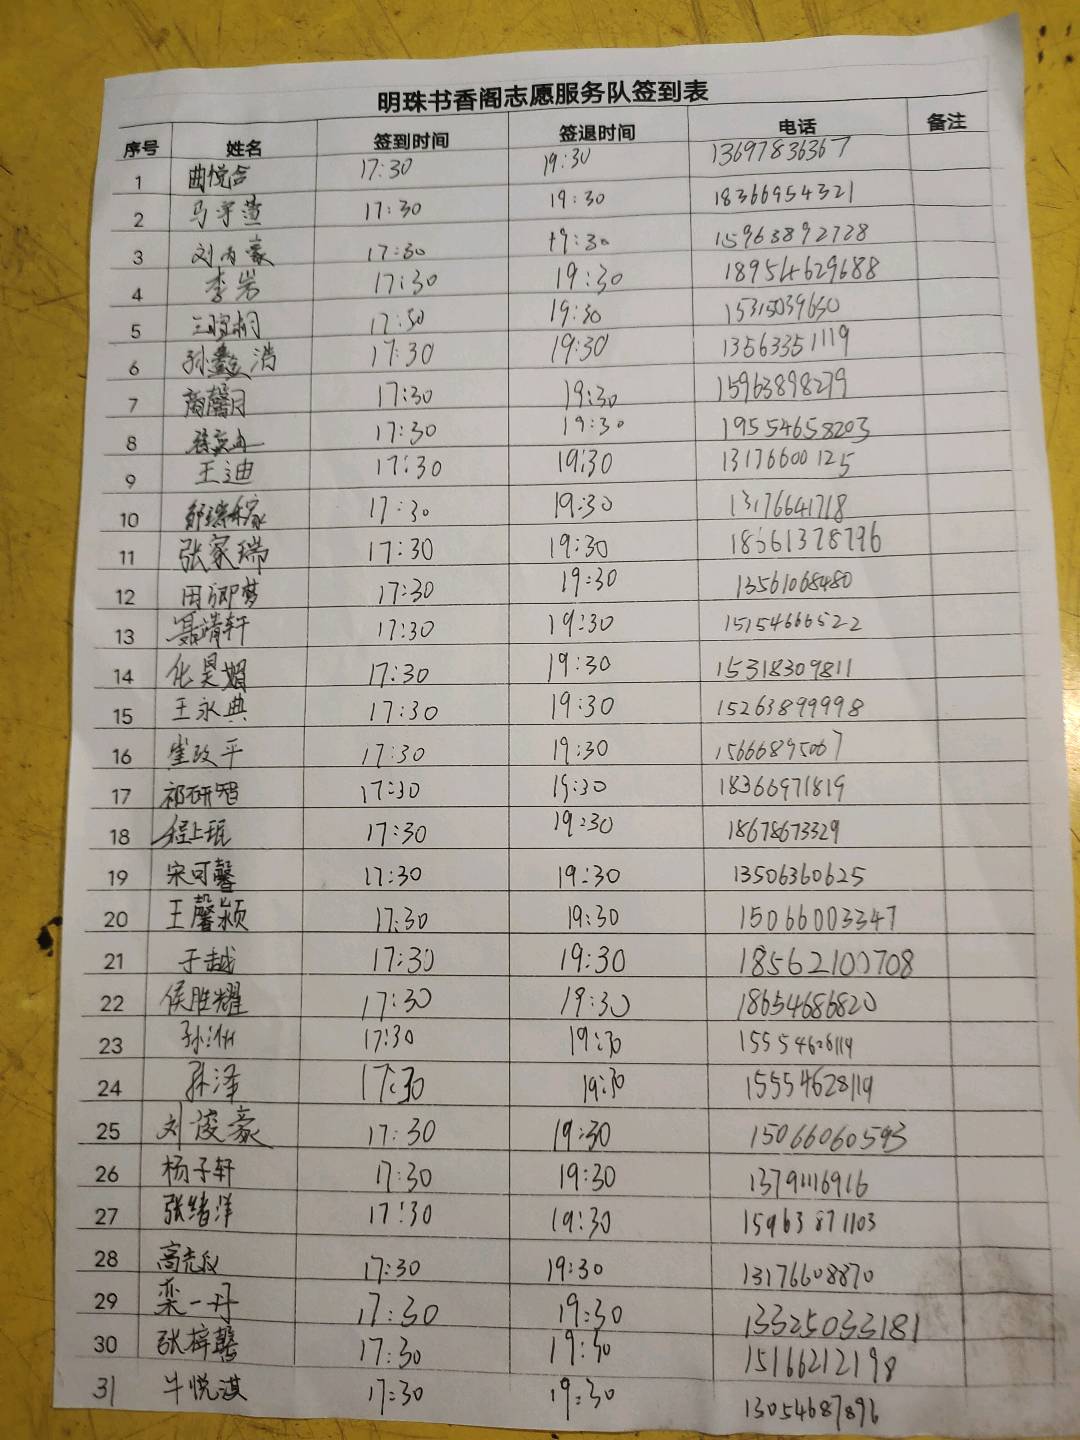 明珠书香阁志愿服务队签到表
序号 姓名 签到时间 签退时间 电话 备注
1 曲悦含 17:30 19:30 13697836367
2 马宇萱 17:30 19:30 18366954321
3 刘雨豪 17:30 19:30 15963892728
4 李岩 17:30 19:30 18954629688
5 17:30 19:30 15315039650
6 孙鑫浩 17:30 19:30 13563351119
7 商馨月 17:30 19:30 15963898279
8 17:30 19:30 19554658203
9 王迪 17:30 19:30 13176600125
10 17:30 19:30 13176641718
11 张家瑞 17:30 19:30 18561378796
12 田卿梦 17:30 19:30 13561068480
13 聂靖轩 17:30 19:30 15154666522
14 化昊媚 17:30 19:30 15318309811
15 王永典 17:30 19:30 15263899998
16 崔政平 17:30 19:30 15666895067
17 祁研智 17:30 19:30 18366971819
18 程上珉 17:30 19:30 18678673329
19 宋可馨 17:30 19:30 13506360625
20 王馨颍 17:30 19:30 15066003347
21 于越 17:30 19:30 18562100708
22 侯胜耀 17:30 19:30 18654686820
23 17:30 19:30
24 孙泽 17:30 19:30 15554628119
25 刘浚豪 17:30 19:30 15066060593
26 杨子轩 17:30 19:30 13791116916
27 张绪洋 17:30 19:30 15963871103
28 17:30 19:30 13176608870
29 栾一丹 17:30 19:30 13325033181
30 张梓馨 17:30 19:30 15166212198
31 牛悦淇 17:30 19:30 13054687896